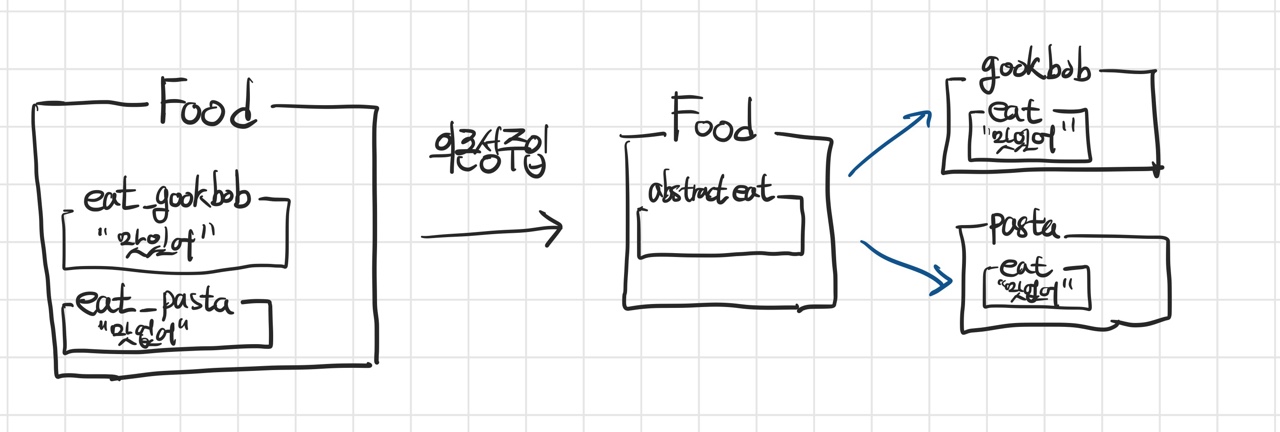 Food
eat_gookbob
"맛있어"
eat_pasta
"맛없어"
의존성주입
Food
abstract eat
gookbob
eat
"맛있어"
pasta
eat
"맛없어"